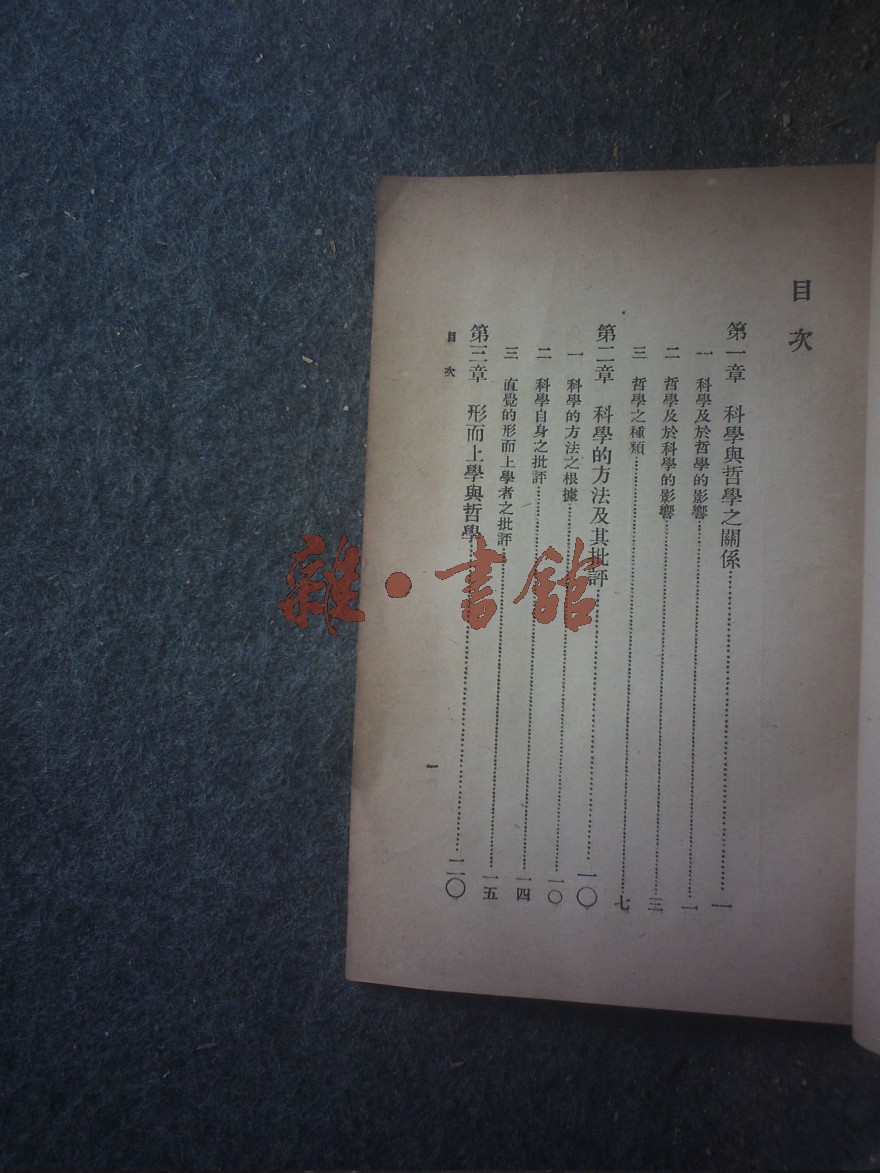 目次
第一章 科學與哲學之關係……一
一 科學及於哲學的影響……一
二 哲學及於科學的影響……三
三 哲學之種類……七
第二章 科學的方法及其批評……一〇
一 科學的方法之根據……一〇
二 科學自身之批評……一四
三 直覺的形而上學者之批評……一五
第三章 形而上學與哲學……二〇
目次
一
雜·書館